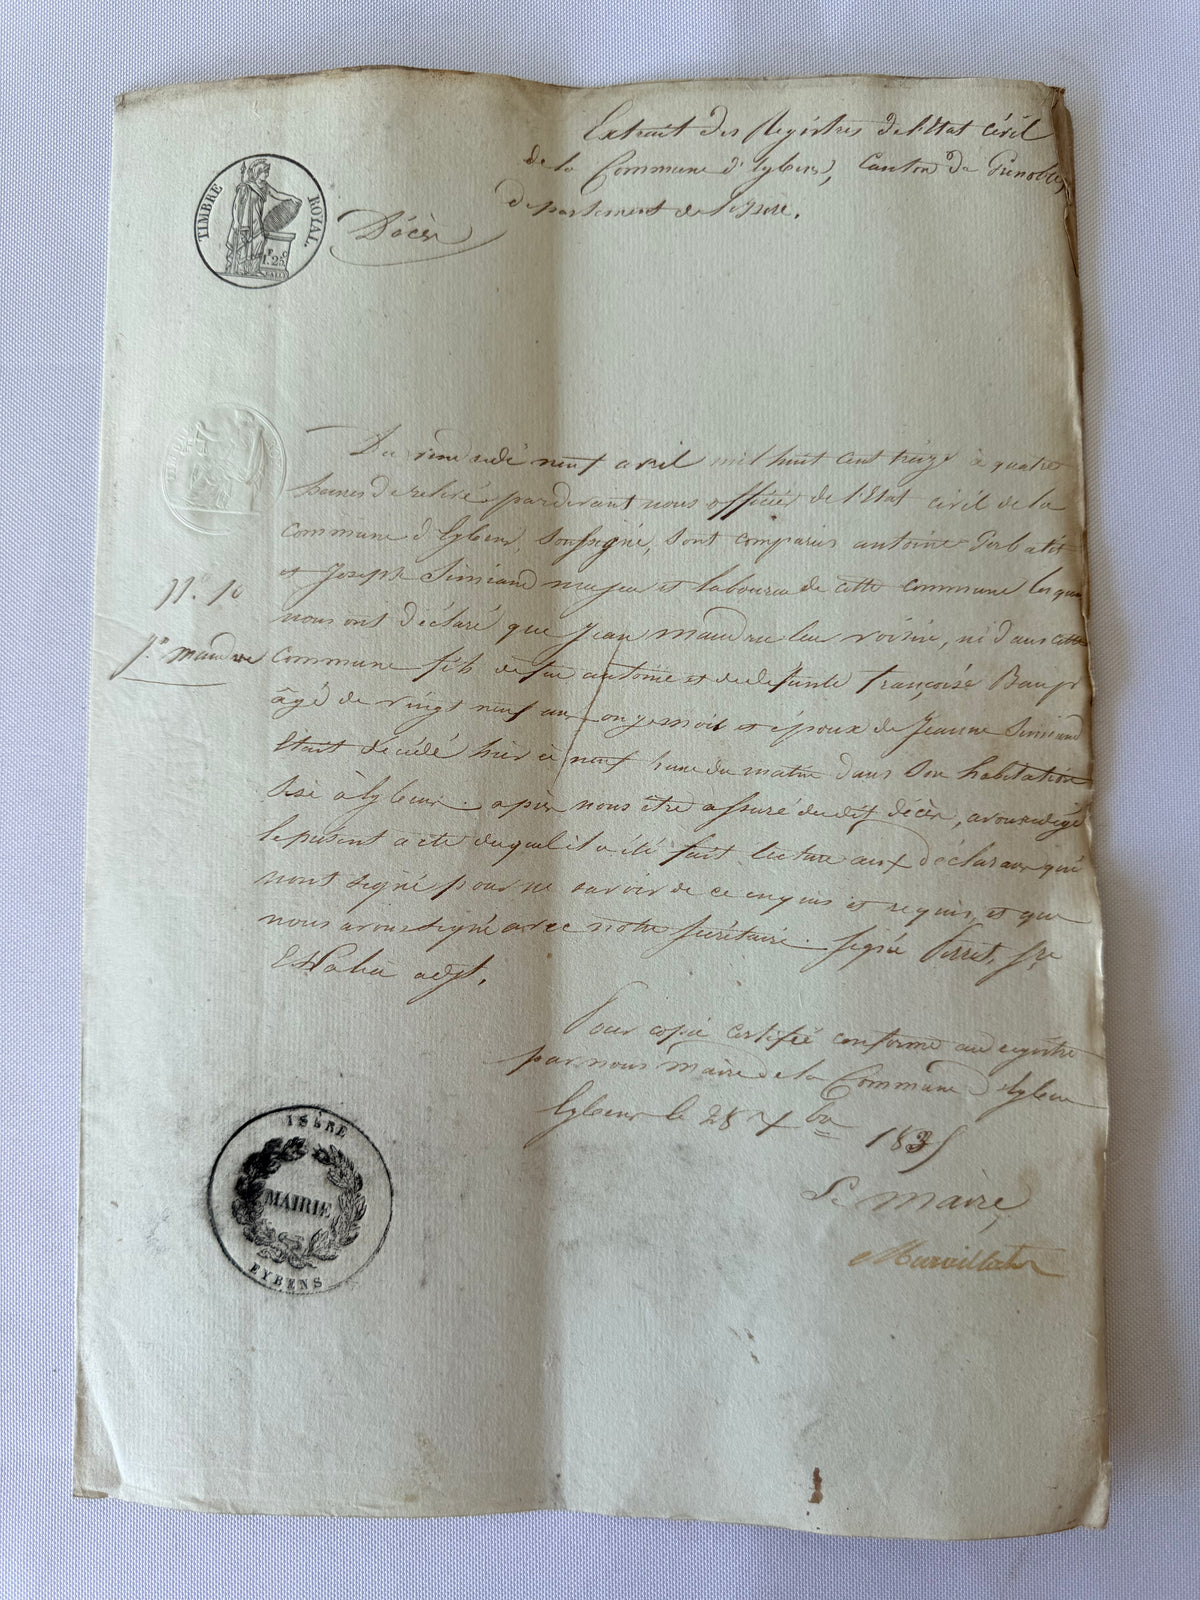 Extrait des Registres de l'Etat civil
de la Commune d'Eybens, Canton de Grenoble,
département de l'isère.
TIMBRE ROYAL.
1. F 25 C
Décès
Du vendredi neuf avril mil huit cent treize à quatre
heures de relevé pardevant nous officier de l'Etat civil de la
commune d'Eybens, soussigné, sont comparus antoine
et Joseph Simiand majeur et laboureur de cette commune lesquels
N.o 10
nous ont déclaré que Jean mandrue leur voisin, né dans cette
J.n mandrue
commune fils de feu antoine et de defunte françoise
âgé de vingt neuf ans onze mois et époux de Jeanne Simiand
était décédé hier à neuf heure du matin dans son habitation
sise à Eybens. après nous être assuré du dit décès, avons rédigé
le présent acte duquel il a été fait lecture aux déclarans qui
n'ont signé pour ne savoir de ce enquis et requis, et que
nous avons signé avec notre secrétaire. signé Perret, s.re
adjt.
Pour copie certifiée conforme au registre
par nous maire de la Commune d'Eybens
Eybens le 28 7bre 1835
Le maire,
ISÈRE
MAIRIE
EYBENS